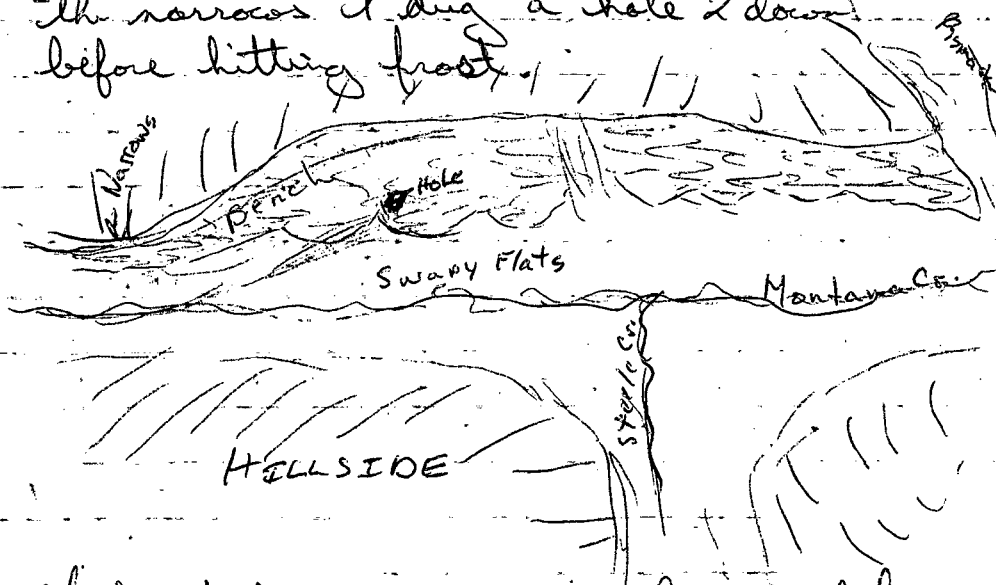 the narrows I dug a hole 2 down
before hitting frost.
Narrows
Bench
Hole
Swapy Flats
Montana Cr.
Steele Cr.
HILLSIDE